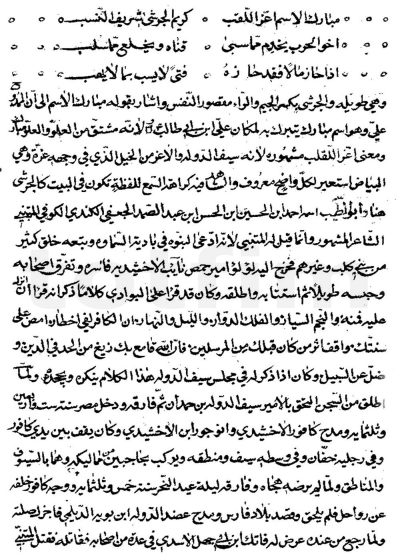 مبارك الاسم اغر اللقب كريم الجرشى شريف النسب
اخو الحرب يخدم مما سبى قناه ويخلع مما سلب
اذا حاز مالا فقد حازه فتى لا يسر بما لا يهب
وهي طويله والجرشى بكسر الجيم والراء مقصور النفس واشار بقوله مبارك الاسم الى ان
علي وهو اسم مبارك يتبرك به لمكان علي ابن ابي طالب لانه مشتق من العلو والعلو
ومعنى اغر اللقلب مشهور لانه سيف الدوله والاغر من الخيل الذي في وجهه غرة وهي
البياض استعير لكل واضح معروف كراهة السمع للفظة تكون في البيت كالجرشى
هنا وابو الطيب اسمه احمد ابن الحسين ابن الحسن ابن عبد الصمد الجعفي الكندي الكوفي المتنبي
الشاعر المشهور وانما قيل له المتنبي لانه ادعى النبوه في بادية السماوه وتبعه خلق كثير
من بني كلب وغيرهم فخرج اليه لؤلؤ امير حمص نايب الاخشيديه فاسره وتفرق اصحابه
وحبسه طويلا ثم استتابه واطلقه وكان قد قرا على البوادي كلاما ذكر انه قران انزل
عليه فمنه والنجم السيار والفلك الدوار والليل والنهار ان الكافر لفي اخطار امض على
سنتك واقف اثر من كان قبلك من المرسلين فان الله قامع بك زيغ من الحد في الدين و
ضل عن السبيل وكان اذا ذكر له في مجلس سيف الدوله هذا الكلام ينكره ويجحده ولما
اطلق من السجن التحق بالامير سيف الدوله بن حمدان ثم فارقه ودخل مصر سنة ست واربعين
وثلثمايه ومدح كافور الاخشيدي وانوجور ابن الاخشيدي وكان يقف بين يدي كافور
وفي رجليه خفان وفي وسطه سيف ومنطقه ويركب بحاجبين من مماليكه وهما بالسيوف
والمناطق ولما لم يرضه هجاه وفارقه ليلة عيد النحر سنة خمس وثلثمايه ووجه كافور خلفه
عن رواحل فلم يلحق وقصد بلاد فارس ومدح عضد الدوله ابن بويه الديلمي فاجزل صلته
ولما رجع من عنده عرض له فاتك ابن ابي جهل الاسدي في عدة من اصحابه فقاتله فقتل المتنبي